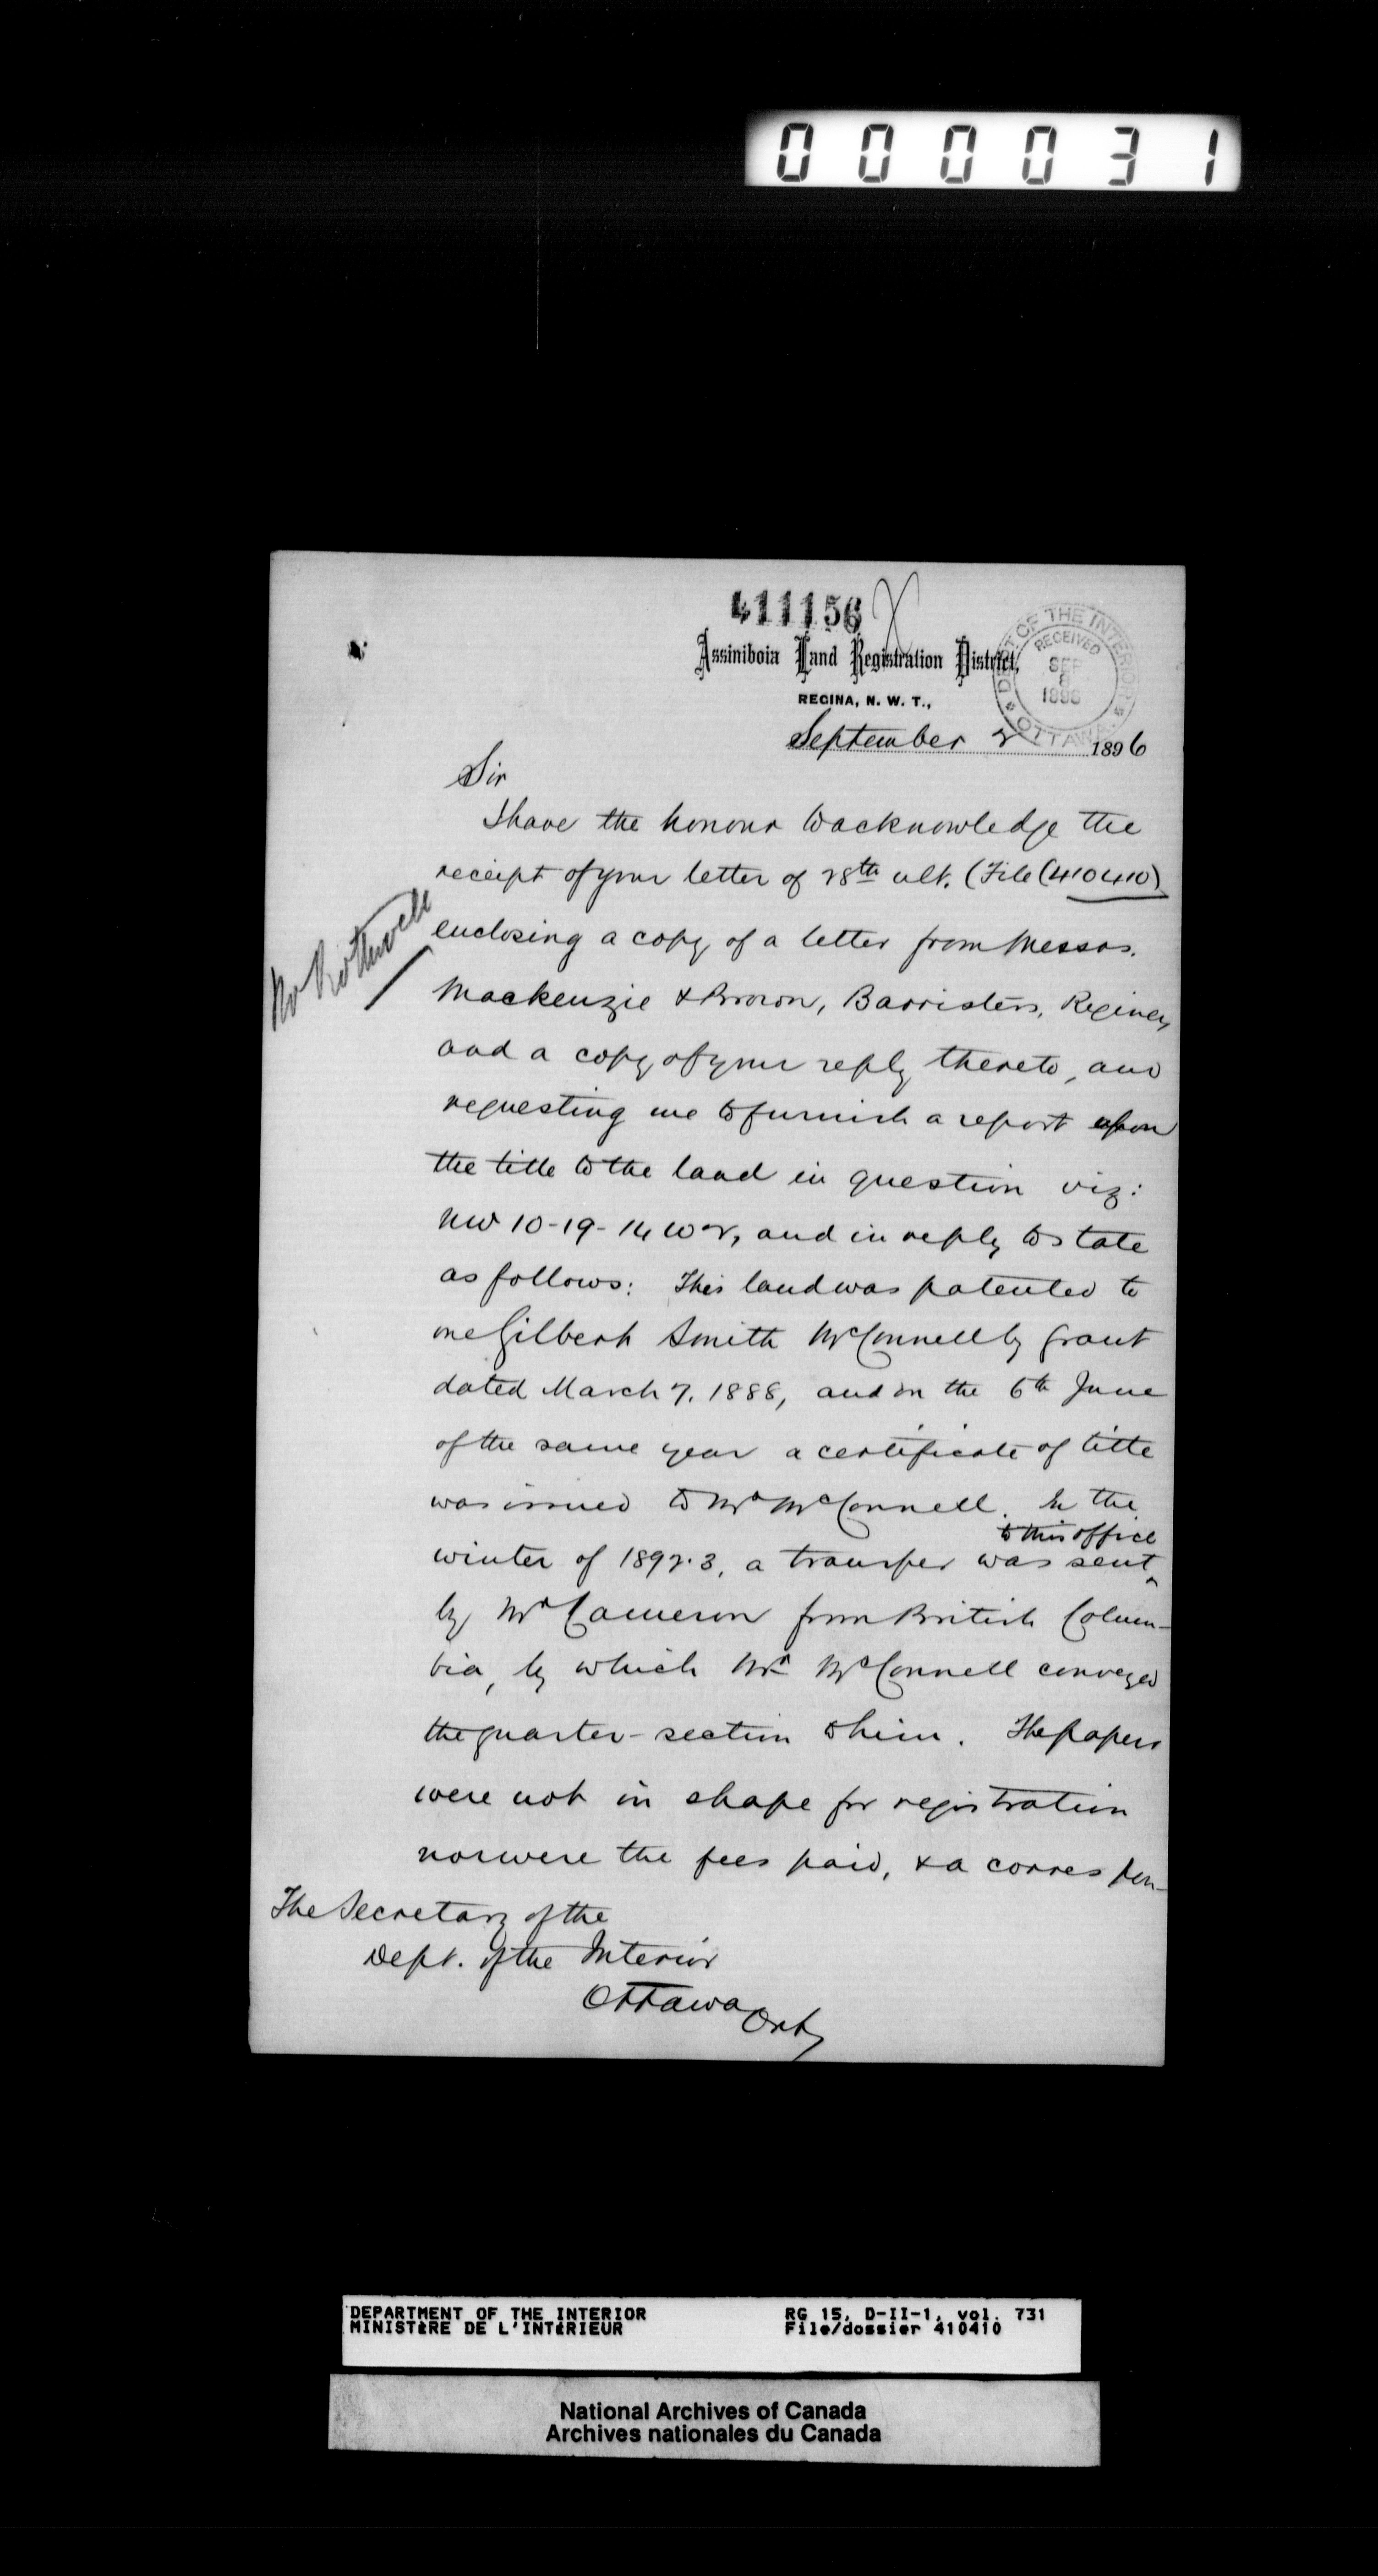 000031
411156
Assiniboia Land Registration District,
REGINA, N. W. T.,
DEPT OF THE INTERIOR
RECEIVED
SEP
8
1896
OTTAWA
September 2 1896
Sir
I have the honour to acknowledge the
receipt of your letter of 28th ult. (File (410410)
enclosing a copy of a letter from Messrs.
Mr Rothwell
Mackenzie & Brown, Barristers, Regina,
and a copy of your reply thereto, and
requesting me to furnish a report upon
the title to the land in question viz:
NW 10-19-14 W 2, and in reply to state
as follows: This land was patented to
one Gilbert Smith McConnell by grant
dated March 7, 1888, and on the 6th June
of the same year a certificate of title
was issued to Mr McConnell. In the
to this office
winter of 1892.3, a transfer was sent ^
by Mr Cameron from British Colum-
bia, by which Mr McConnell conveyed
the quarter-section to him. The papers
were not in shape for registration
nor were the fees paid, & a correspon-
The Secretary of the
Dept. of the Interior
Ottawa
Ont.
DEPARTMENT OF THE INTERIOR RG 15, D-II-1, vol. 731
MINISTÈRE DE L'INTÉRIEUR File/dossier 410410
National Archives of Canada
Archives nationales du Canada